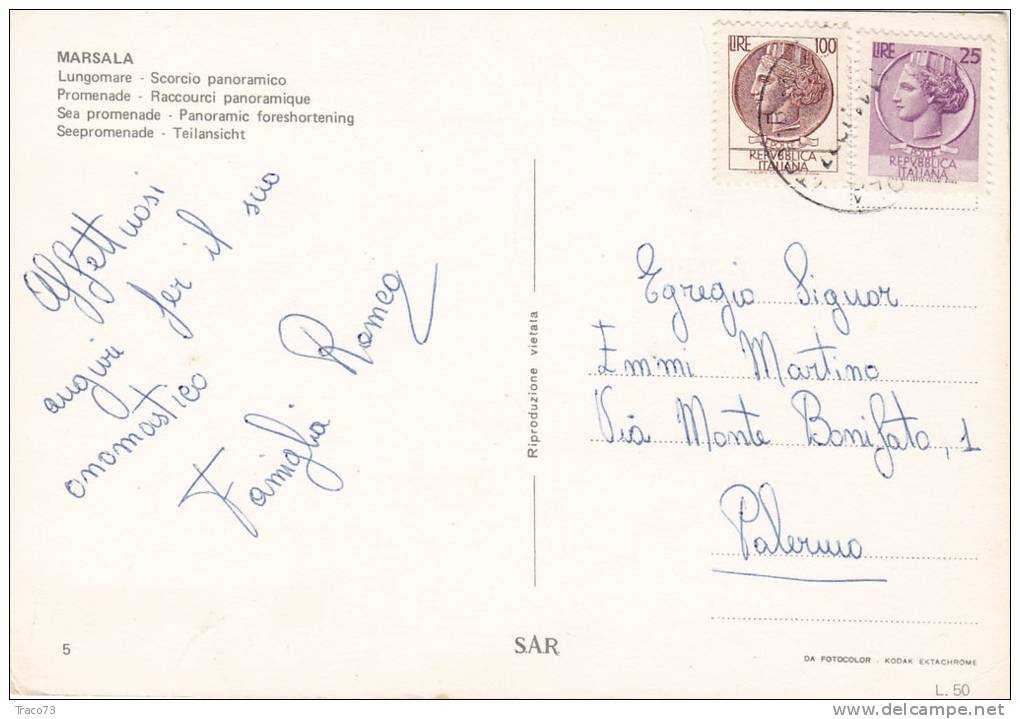 MARSALA
Lungomare - Scorcio panoramico
Promenade - Raccourci panoramique
Sea promenade - Panoramic foreshortening
Seepromenade - Teilansicht
LIRE 100
POSTE
REPVBBLICA
ITALIANA
LIRE 25
POSTE
REPVBBLICA
ITALIANA
Affettuosi
auguri per il suo
onomastico
Famiglia Romeo
Riproduzione vietata
Egregio Signor
Emmi Martino
Via Monte Bonifato, 1
Palermo
5
SAR
DA FOTOCOLOR - KODAK EKTACHROME
L. 50
Traco73
www.delcampe.net